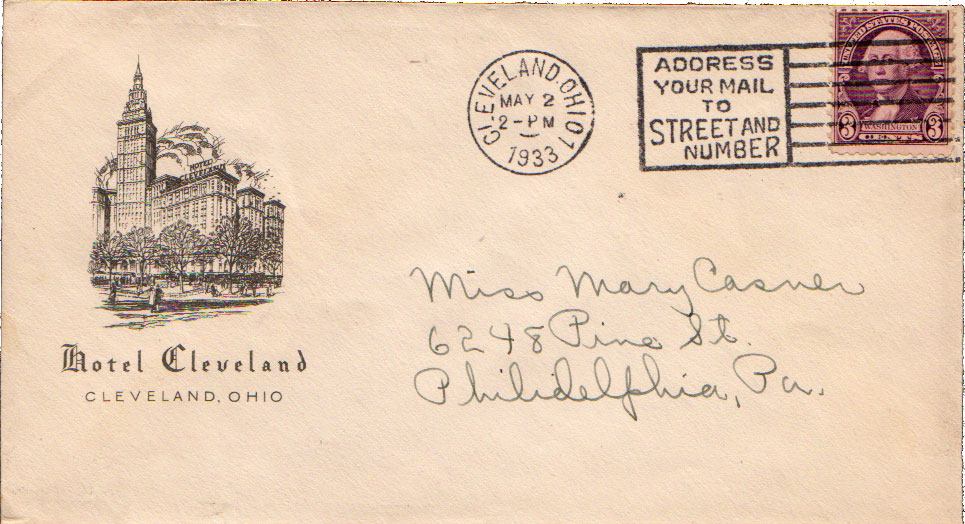 CLEVELAND, OHIO 1
MAY 2
2 - PM
1933
ADDRESS
YOUR MAIL
TO
STREET AND
NUMBER
UNITED STATES POSTAGE
3 WASHINGTON 3
HOTEL
CLEVELAND
Miss Mary Casner
6248 Pine St.
Philidelphia, Pa.
Hotel Cleveland
CLEVELAND, OHIO